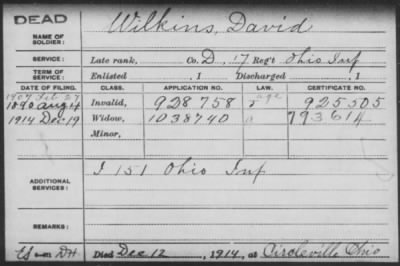 DEAD
Wilkins, David
NAME OF SOLDIER:
SERVICE: Late rank, Co. D, 17 Reg't Ohio Inf
TERM OF SERVICE: Enlisted , 1 Discharged , 1
DATE OF FILING. CLASS. APPLICATION NO. LAW. CERTIFICATE NO.
1907 Feb 27 age
1890 Aug 4 Invalid, 928758 925505
1914 Dec 19 Widow, 1038740 793614
Minor,
ADDITIONAL SERVICES: I 151 Ohio Inf
REMARKS:
Died Dec 12, 1914, at Circleville Ohio